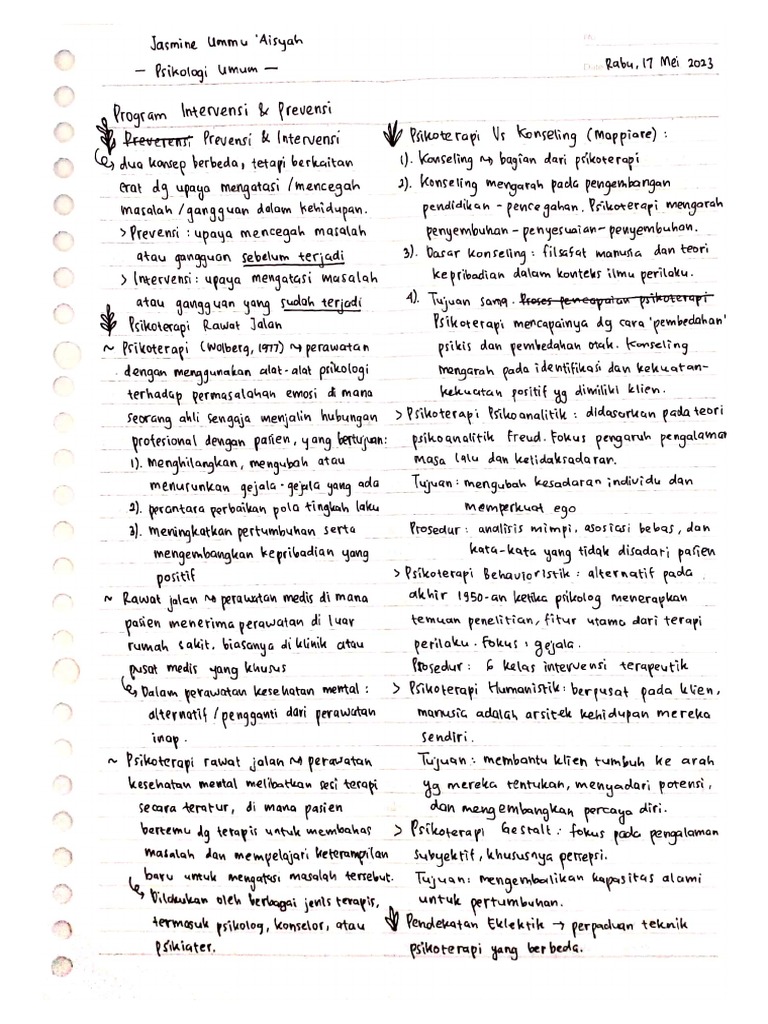 Jasmine Ummu 'Aisyah
— Psikologi Umum —
No.
Date Rabu, 17 Mei 2023
Program Intervensi & Prevensi
Preverensi Prevensi & Intervensi
dua konsep berbeda, tetapi berkaitan
erat dg upaya mengatasi / mencegah
masalah / gangguan dalam kehidupan.
> Prevensi : upaya mencegah masalah
atau gangguan sebelum terjadi
> Intervensi : upaya mengatasi masalah
atau gangguan yang sudah terjadi
Psikoterapi Rawat Jalan
~ Psikoterapi (Wolberg, 1977) → perawatan
dengan menggunakan alat-alat psikologi
terhadap permasalahan emosi di mana
seorang ahli sengaja menjalin hubungan
profesional dengan pasien, yang bertujuan:
1). menghilangkan, mengubah atau
menurunkan gejala-gejala yang ada
2). perantara perbaikan pola tingkah laku
3). meningkatkan pertumbuhan serta
mengembangkan kepribadian yang
positif
~ Rawat jalan → perawatan medis di mana
pasien menerima perawatan di luar
rumah sakit. biasanya di klinik atau
pusat medis yang khusus
Dalam perawatan kesehatan mental :
alternatif / pengganti dari perawatan
inap.
~ Psikoterapi rawat jalan → perawatan
kesehatan mental melibatkan sesi terapi
secara teratur, di mana pasien
bertemu dg terapis untuk membahas
masalah dan mempelajari keterampilan
baru untuk mengatasi masalah tersebut.
Dilakukan oleh berbagai jenis terapis,
termasuk psikolog, konselor, atau
psikiater.
Psikoterapi Vs Konseling (Mappiare) :
1). Konseling → bagian dari psikoterapi
2). Konseling mengarah pada pengembangan
pendidikan - pencegahan. Psikoterapi mengarah
penyembuhan - penyesuaian - penyembuhan.
3). Dasar konseling : filsafat manusia dan teori
kepribadian dalam konteks ilmu perilaku.
4). Tujuan sama. Proses pencapaian psikoterapi
Psikoterapi mencapainya dg cara 'pembedahan'
psikis dan pembedahan otak. Konseling
mengarah pada identifikasi dan kekuatan-
kekuatan positif yg dimiliki klien.
> Psikoterapi Psikoanalitik : didasarkan pada teori
psikoanalitik Freud. Fokus pengaruh pengalaman
masa lalu dan ketidaksadaran.
Tujuan : mengubah kesadaran individu dan
memperkuat ego
Prosedur : analisis mimpi, asosiasi bebas, dan
kata-kata yang tidak disadari pasien
> Psikoterapi Behavioristik : alternatif pada
akhir 1950-an ketika psikolog menerapkan
temuan penelitian, fitur utama dari terapi
perilaku. Fokus : gejala.
Prosedur : 6 kelas intervensi terapeutik
> Psikoterapi Humanistik : berpusat pada klien,
manusia adalah arsitek kehidupan mereka
sendiri.
Tujuan : membantu klien tumbuh ke arah
yg mereka tentukan, menyadari potensi,
dan mengembangkan percaya diri.
> Psikoterapi Gestalt : fokus pada pengalaman
subyektif, khususnya persepsi.
Tujuan : mengembalikan kapasitas alami
untuk pertumbuhan.
Pendekatan Eklektik → perpaduan teknik
psikoterapi yang berbeda.